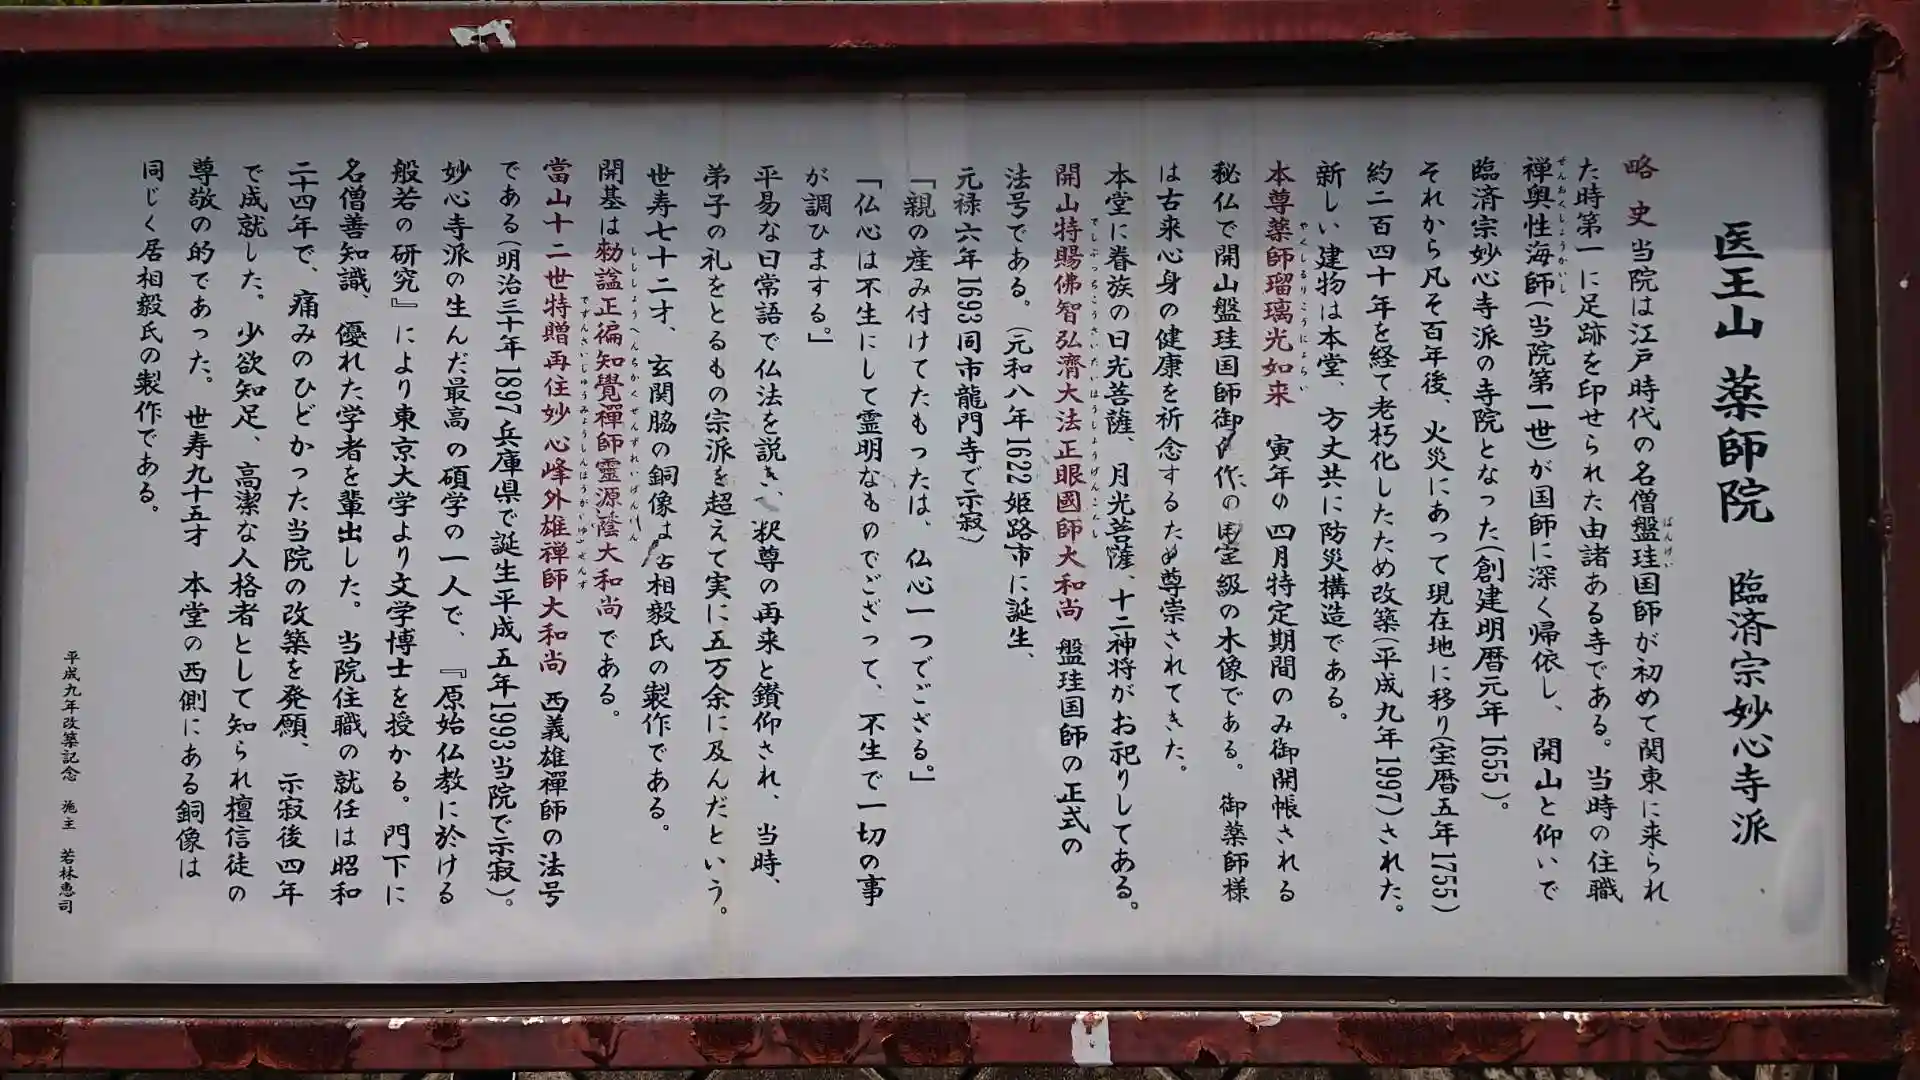 医王山 薬師院 臨済宗妙心寺派
略史 当院は江戸時代の名僧盤珪国師が初めて関東に来られ
た時第一に足跡を印せられた由諸ある寺である。当時の住職
禅奥性海師(当院第一世)が国師に深く帰依し、開山と仰いで
臨済宗妙心寺派の寺院となった(創建明暦元年1655)。
それから凡そ百年後、火災にあって現在地に移り(宝暦五年1755)
約二百四十年を経て老朽化したため改築(平成九年1997)された。
新しい建物は本堂、方丈共に防災構造である。
本尊薬師瑠璃光如来 寅年の四月特定期間のみ御開帳される
秘仏で開山盤珪国師御作の国宝級の木像である。御薬師様
は古来心身の健康を祈念するため尊崇されてきた。
本堂に眷族の日光菩薩、月光菩薩、十二神将がお祀りしてある。
開山特賜佛智弘濟大法正眼國師大和尚 盤珪国師の正式の
法号である。(元和八年1622姫路市に誕生、
元禄六年1693同市龍門寺で示寂)
「親の産み付けてたもったは、仏心一つでござる。」
「仏心は不生にして霊明なものでござって、不生で一切の事
が調ひまする。」
平易な日常語で仏法を説き、釈尊の再来と鑚仰され、当時、
弟子の礼をとるもの宗派を超えて実に五万余に及んだという。
世寿七十二才、玄関脇の銅像は居相毅氏の製作である。
開基は勅諡正徧知覺禪師靈源蔭大和尚である。
當山十二世特贈再住妙心峰外雄禅師大和尚 西義雄禪師の法号
である(明治三十年1897兵庫県で誕生平成五年1993当院で示寂)。
妙心寺派の生んだ最高の碩学の一人で、『原始仏教に於ける
般若の研究』により東京大学より文学博士を授かる。門下に
名僧善知識、優れた学者を輩出した。当院住職の就任は昭和
二十四年で、痛みのひどかった当院の改築を発願、示寂後四年
で成就した。少欲知足、高潔な人格者として知られ檀信徒の
尊敬の的であった。世寿九十五才 本堂の西側にある銅像は
同じく居相毅氏の製作である。
平成九年改築記念 施主 若林恵司